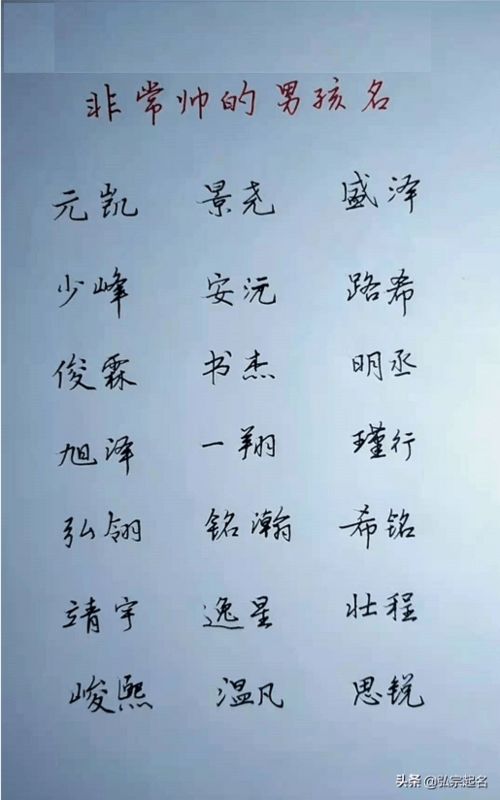 非常帅的男孩名
元凯 景尧 盛泽
少峰 安沅 路希
俊霖 书杰 明丞
旭泽 一翔 瑾行
弘翎 铭瀚 希铭
靖宇 逸星 壮程
峻熙 温凡 思锐
头条 @弘宗起名